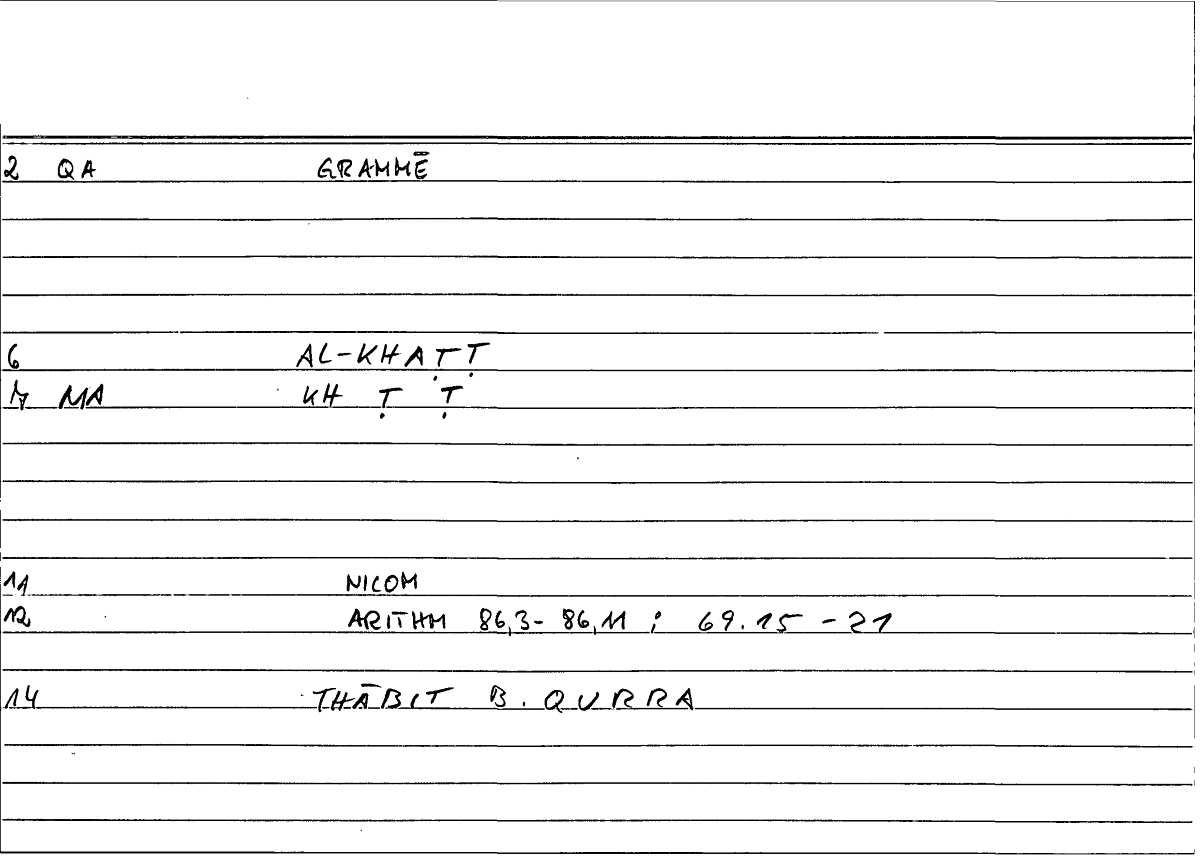 2 QA GRAMMĒ
6 AL-KHAṬṬ
7 MA KH Ṭ Ṭ
11 NICOM
12 ARITHM 86,3- 86,11 ; 69.15 - 21
14 THĀBIT B. QURRA